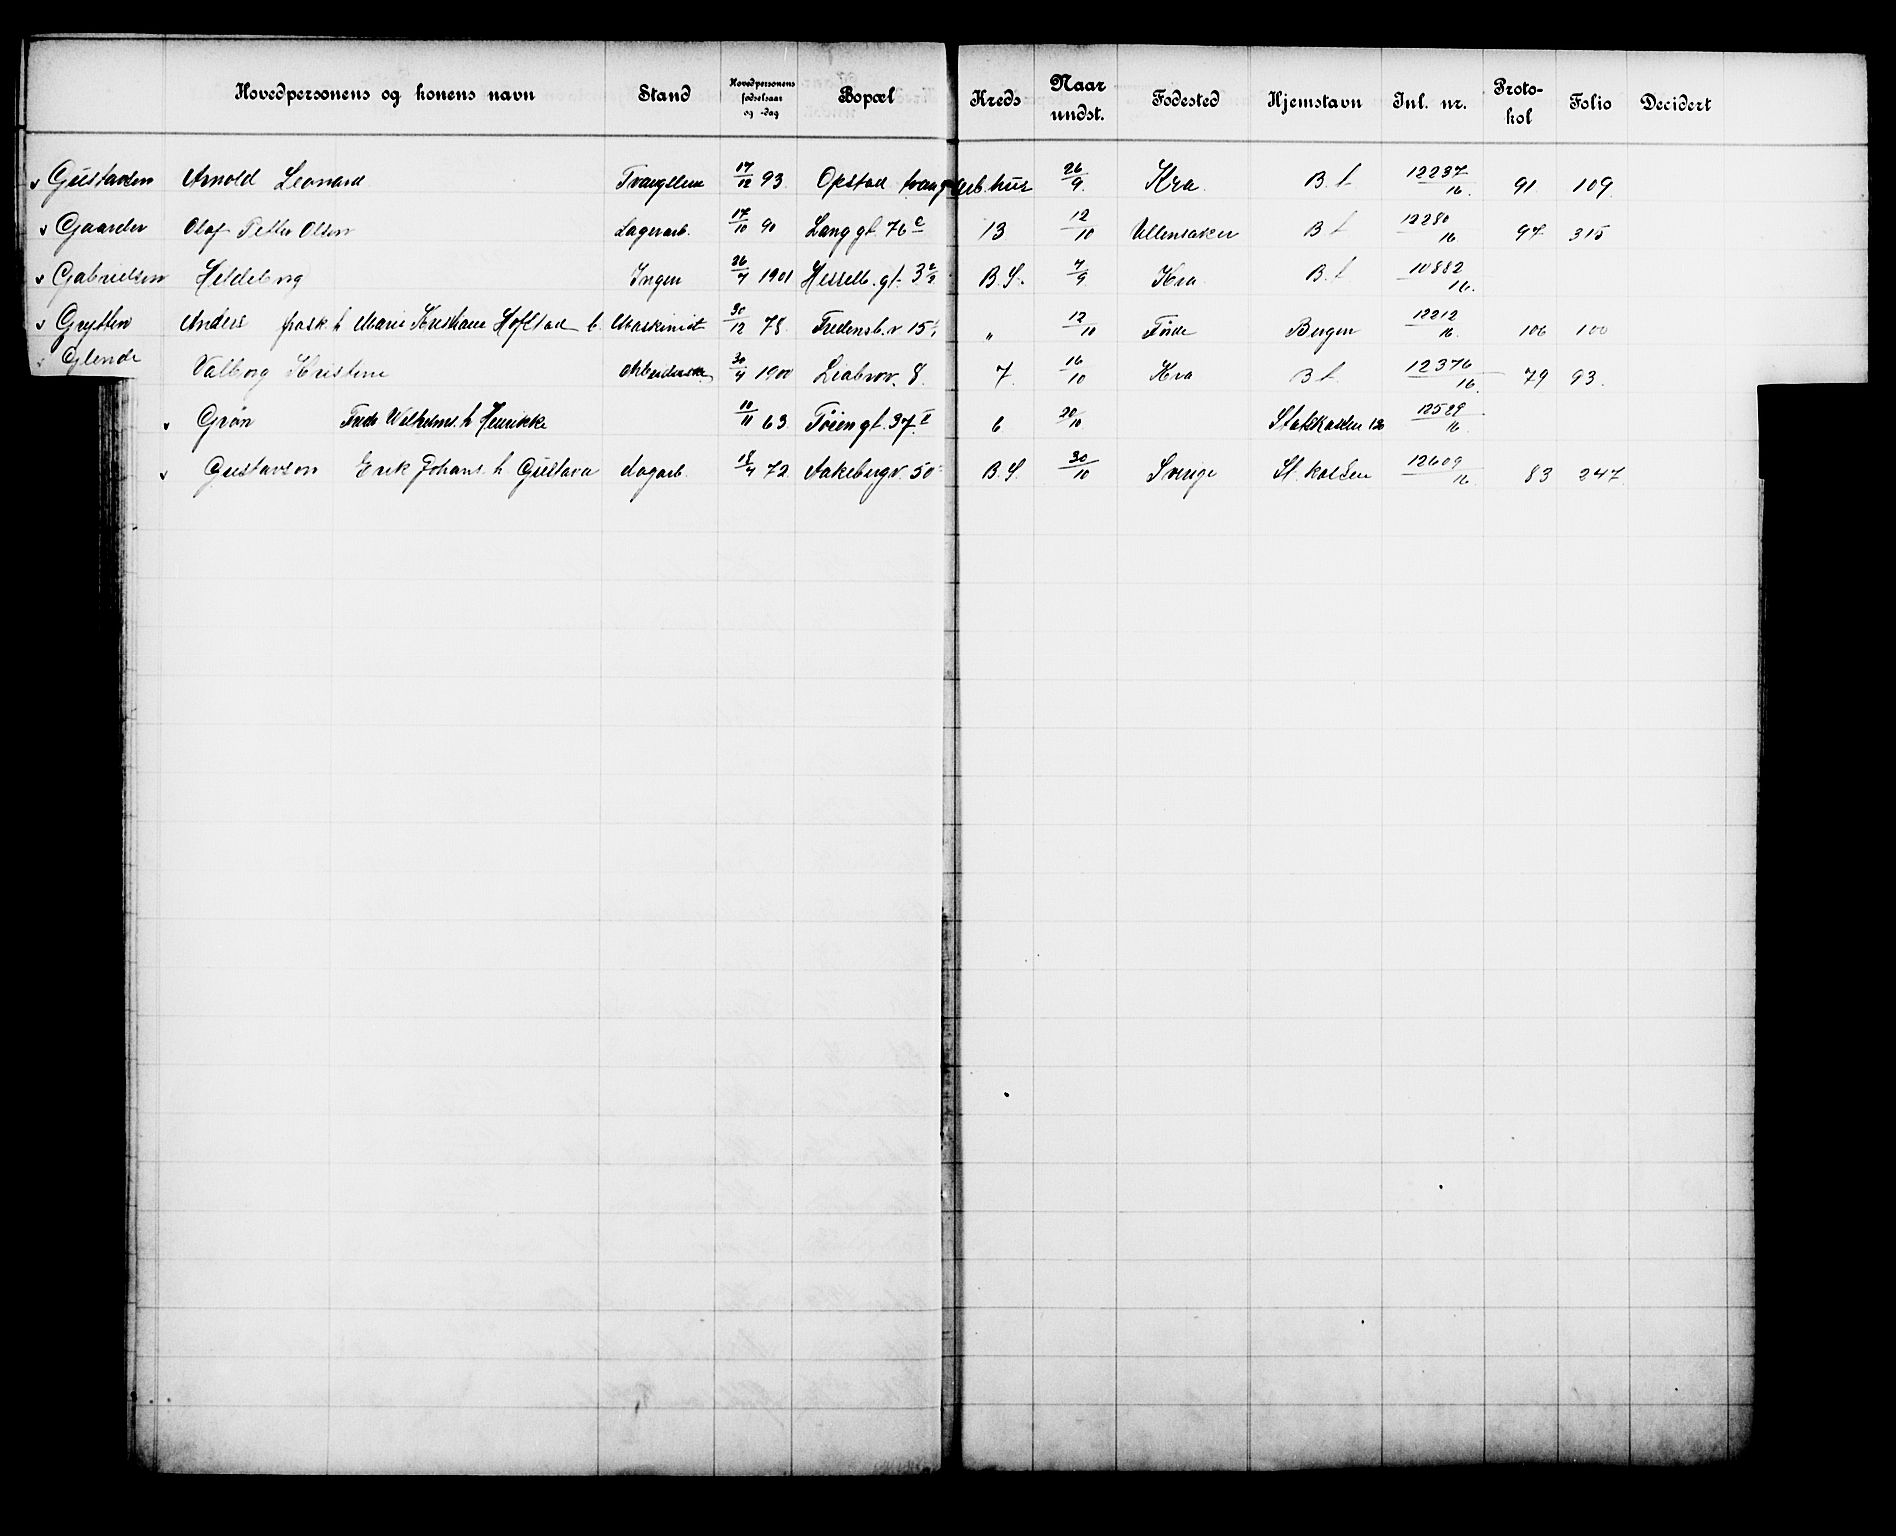 Hovedpersonens og konens navn Stand Hovedpersonens fødselsaar og -dag Bopæl Kreds Naar undst. Fødested Hjemstavn Inl. nr. Protokol Folio Decidert
Gustavsen Arnold Leonard 17/12 93. Opstad tvangsarb.hus 26/9. Kra. B. t 12237/16. 91 109.
Gaarder Olaf Petter Olsen Lagerarb. 17/10 90 Langgt. 76 c 13 12/10 Ullensaker B t 12280/16. 97 315
Gabrielsen Hildeborg Ingen 26/4 1901 Hesselb. gt. 3 B. S. 7/9 Kra B. t 10882/16.
Grytten Anders frask. h Marie Kristiane Hofstad Maskinist 30/12 78. Fredensb. v 15 " 12/10 Førde Bergen 12212/16. 106 100
Glende Valborg Kristine Arbeiderske 30/4 1900 Liabrov. 8. 7. 16/10 Kra B t. 12376/16. 79 93.
Grøn Fredr Wilhelms. h Henrikke 10/11 63. Tøiengt. 37 II 6 20/10 Statskassen 12589/16.
Gustavson Erik Johans. h. Gustava Dagarb. 18/4 72. Aakebergv. 50 B. S. 30/10 Sverige St. kassen 12609/16. 83 247.